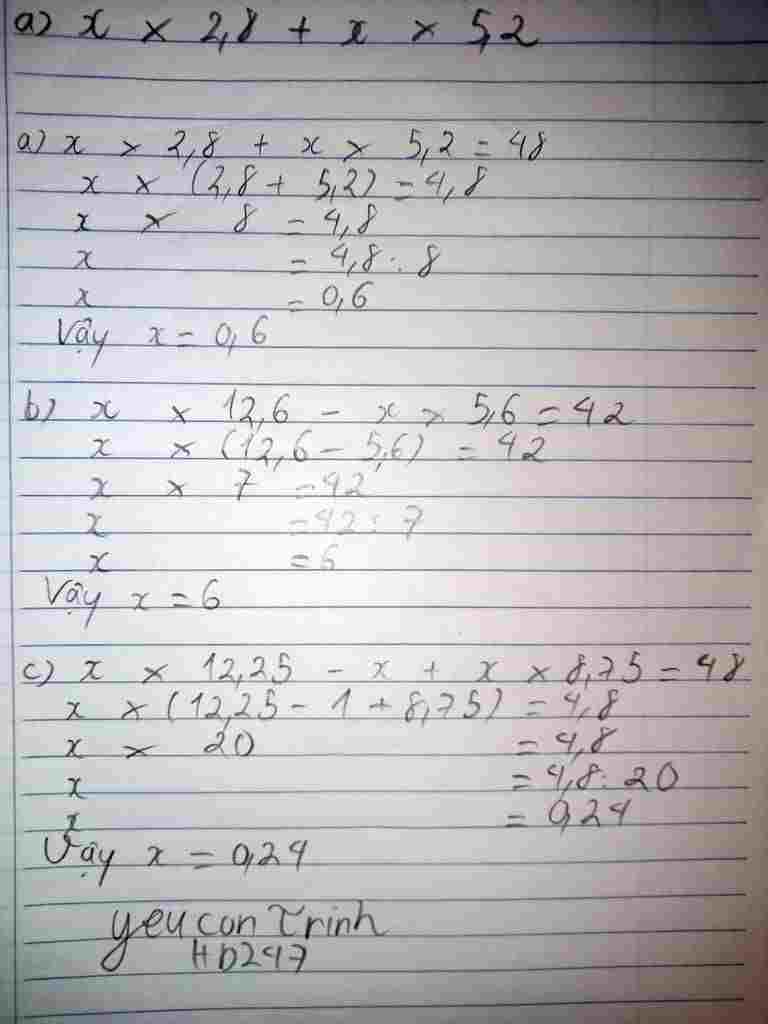 a) x × 2,8 + x × 5,2
a) x × 2,8 + x × 5,2 = 48
x × (2,8 + 5,2) = 4,8
x × 8 = 4,8
x = 4,8 : 8
x = 0,6
Vậy x = 0,6
b) x × 12,6 - x × 5,6 = 42
x × (12,6 - 5,6) = 42
x × 7 = 42
x = 42 : 7
x = 6
Vậy x = 6
c) x × 12,25 - x + x × 8,75 = 48
x × (12,25 - 1 + 8,75) = 4,8
x × 20 = 4,8
x = 4,8 : 20
x = 0,24
Vậy x = 0,24
yeu con Trinh
HD247